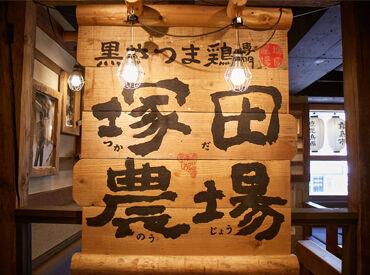 黒さつま鶏専門
塚田
つかだ
農場
のうじょう